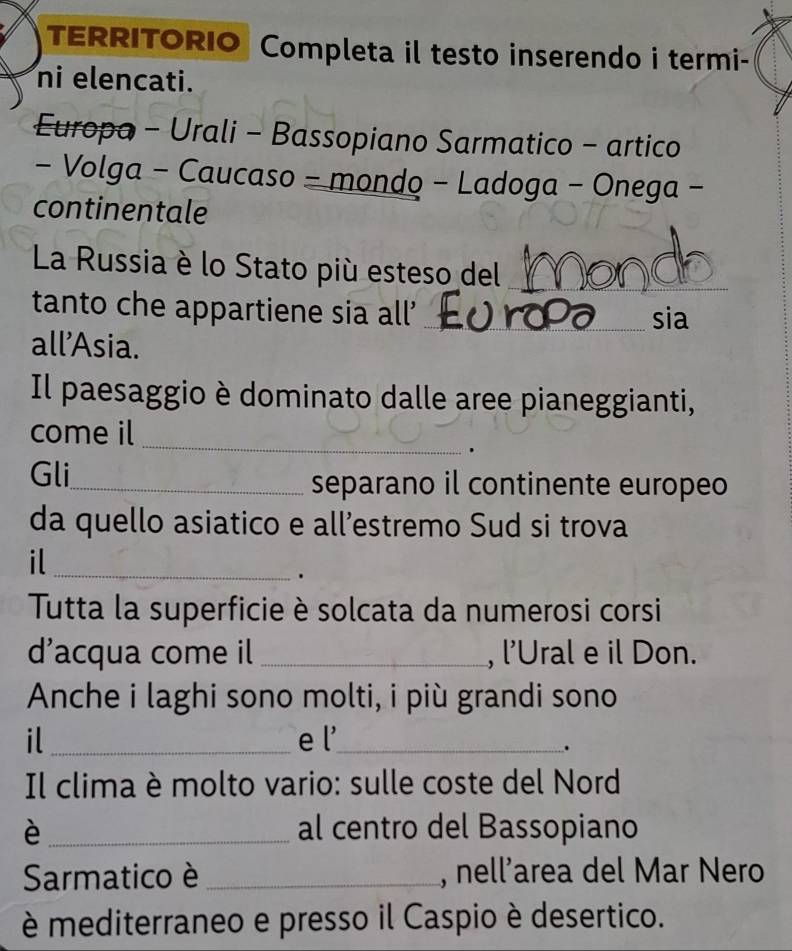 TERRITORIO Completa il testo inserendo i termi-
ni elencati.
Europa - Urali - Bassopiano Sarmatico - artico
- Volga - Caucaso - mondo - Ladoga - Onega -
continentale
La Russia è lo Stato più esteso del Mondo
tanto che appartiene sia all' Europa sia
all'Asia.
Il paesaggio è dominato dalle aree pianeggianti,
come il ______.
Gli ______ separano il continente europeo
da quello asiatico e all'estremo Sud si trova
il ______.
Tutta la superficie è solcata da numerosi corsi
d'acqua come il ______, l'Ural e il Don.
Anche i laghi sono molti, i più grandi sono
il ______ e l'______.
Il clima è molto vario: sulle coste del Nord
è ______ al centro del Bassopiano
Sarmatico è ______, nell'area del Mar Nero
è mediterraneo e presso il Caspio è desertico.